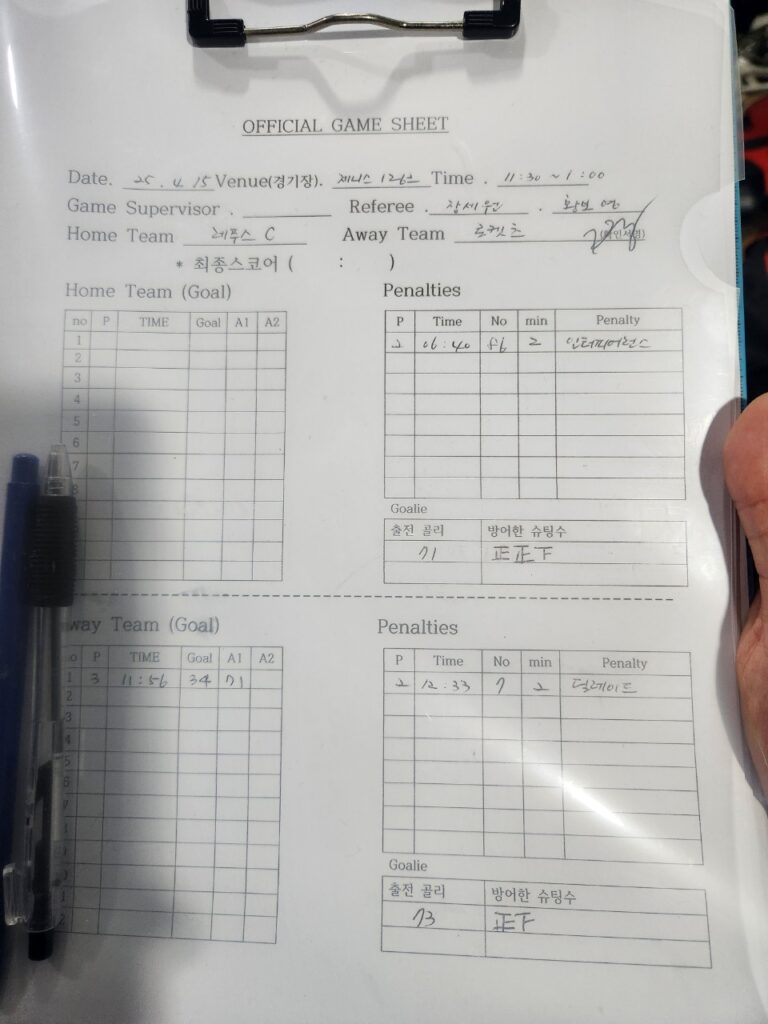 OFFICIAL GAME SHEET
Date. 25. 4. 15 Venue(경기장). 제니스 Time . 11:30 ~ 1:00
Game Supervisor . Referee . 장세원 .
Home Team 레푸스 C Away Team 로켓츠
* 최종스코어 ( : )
Home Team (Goal) Penalties
no P TIME Goal A1 A2
P Time No min Penalty
1
2 06:40 86 2 인터피어런스
2
3
4
5
6
7
Goalie
출전 골리 방어한 슈팅수
71 正正下
way Team (Goal) Penalties
no P TIME Goal A1 A2
P Time No min Penalty
1 3 11:56 34 71
2 12:33 7 2 딜레이드
2
3
4
5
6
Goalie
출전 골리 방어한 슈팅수
73 正下